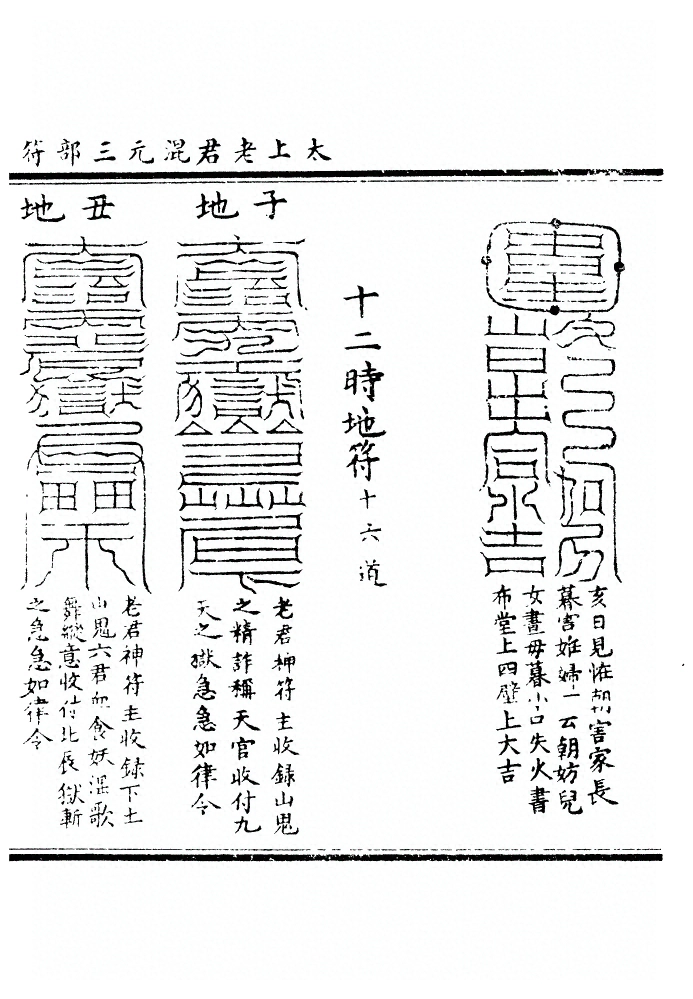 太上老君混元三部符
亥日見怪朝害家長
暮害姙婦一云朝妨兒
女晝毋暮小口失火書
布堂上四壁上大吉
十二時地符十六道
子地
老君神符主收録山鬼
之精詐稱天官收付九
天之獄急急如律令
丑地
老君神符主收録下土
山鬼六君血食妖滛歌
舞縱意收付北辰獄斬
之急急如律令